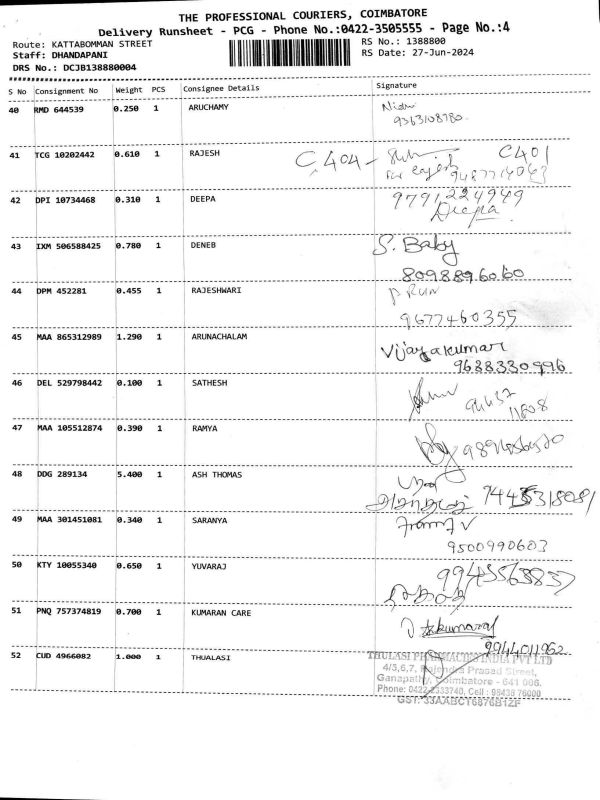 THE PROFESSIONAL COURIERS, COIMBATORE
Delivery Runsheet - PCG - Phone No.:0422-3505555 - Page No.:4
Route: KATTABOMMAN STREET
RS No.: 1388800
Staff: DHANDAPANI
RS Date: 27-Jun-2024
DRS No.: DCJB138880004
S No Consignment No Weight PCS Consignee Details Signature
40 RMD 644539 0.250 1 ARUCHAMY
9363108780
41 TCG 10202442 0.610 1 RAJESH C 404 - C401
For
42 DPI 10734468 0.310 1 DEEPA 9791224949
Deepa
43 IXM 506588425 0.780 1 DENEB S. Baby
8098896060
44 DPM 452281 0.455 1 RAJESHWARI
9677460355
45 MAA 865312989 1.290 1 ARUNACHALAM Vijayakumar
9638330996
46 DEL 529798442 0.100 1 SATHESH
47 MAA 105512874 0.390 1 RAMYA
48 DDG 289134 5.400 1 ASH THOMAS
49 MAA 301451081 0.340 1 SARANYA
9500990603
50 KTY 10055340 0.650 1 YUVARAJ
51 PNQ 757374819 0.700 1 KUMARAN CARE
9944011962
52 CUD 4966082 1.000 1 THUALASI THULASI PHARMACIES INDIA PVT LTD
4/3,6,7, Rajendra Prasad Street,
Ganapathy, Coimbatore - 641 006.
Phone: 0422-2333740, Cell : 98438 76000
GST: 33AABCT6876B1ZF